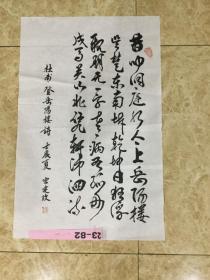 昔闻洞庭水今上岳陽樓
吴楚東南坼乾坤日夜浮
親朋无一字老病有孤舟
戎馬关山北凭軒涕泗流
杜甫登岳陽樓詩 壬辰夏
23-B2